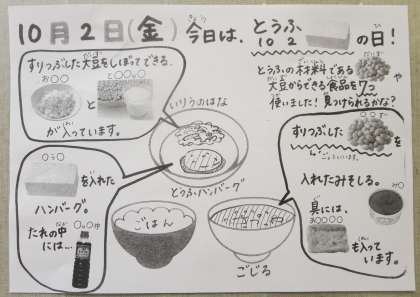 10月2日(金) 今日は、とうふの日!
きょう
ひ
10 2
とうふの材料である
や
大豆からできる食品を7つ
使いました! 見つけられるかな?
すりつぶした大豆をしぼってできる、
お〇〇
と
と〇〇〇〇
が入っています。
いりうのはな
とうふハンバーグ
ごはん
ごじる
〇う〇
を入れた
ハンバーグ。
たれの中
には…
すりつぶした
を
入れたみそしる。
み〇
具には、
も入って
います。